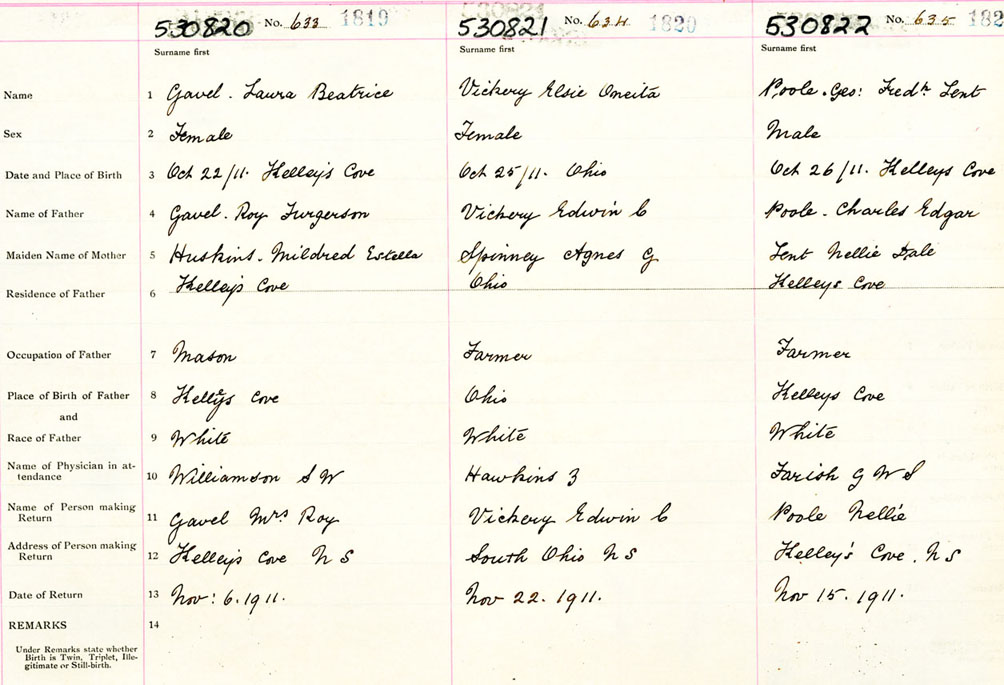 530820 No. 633 1819 530821 No. 634 1820 530822 No. 635 182
Surname first Surname first Surname first
Name 1 Gavel. Laura Beatrice Vickery Elsie Oneita Poole. Geo: Fredk Tent
Sex 2 Female Female Male
Date and Place of Birth 3 Oct 22/11. Kelley's Cove Oct 25/11. Ohio Oct 26/11. Kelleys Cove
Name of Father 4 Gavel. Roy Furgerson Vickery Edwin C Poole. Charles Edgar
Maiden Name of Mother 5 Huskins. Mildred Estella Spinney Agnes G Tent Nellie Dale
Residence of Father 6 Kelley's Cove Ohio Kelleys Cove
Occupation of Father 7 Mason Farmer Farmer
Place of Birth of Father 8 Kelleys Cove Ohio Kelleys Cove
and
Race of Father 9 White White White
Name of Physician in at-
tendance 10 Williamson S W Hawkins Z Farish G W S
Name of Person making
Return 11 Gavel Mrs Roy Vickery Edwin C Poole Nellie
Address of Person making
Return 12 Kelley's Cove N S South Ohio N S Kelley's Cove. N S
Date of Return 13 Nov: 6. 1911. Nov 22. 1911. Nov 15. 1911.
REMARKS 14
Under Remarks state whether
Birth is Twin, Triplet, Ille-
gitimate or Still-birth.